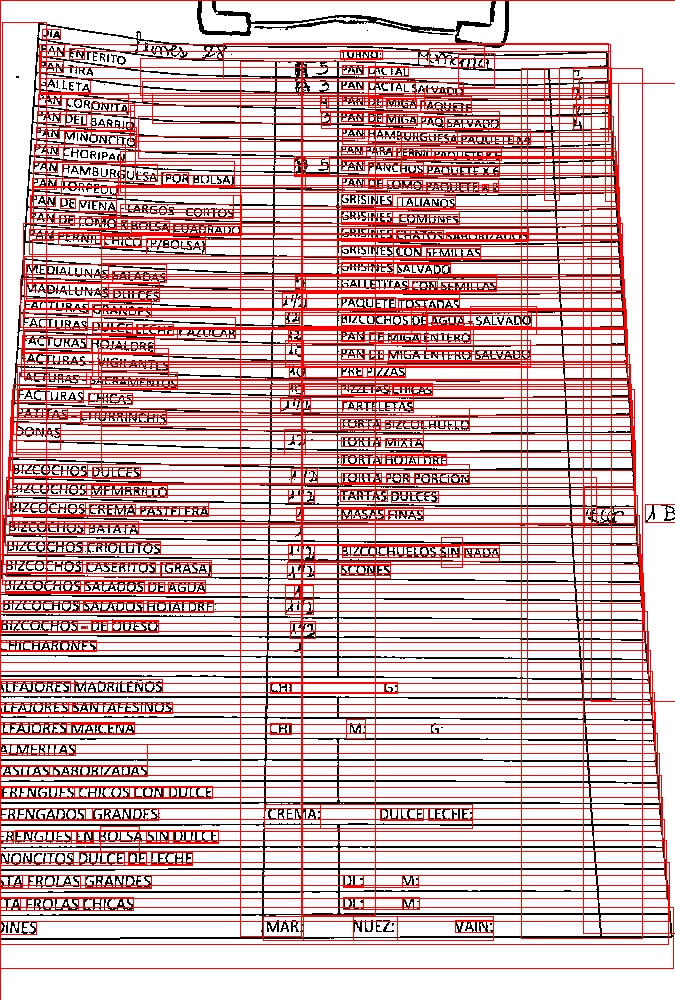 DIA Lunes 28 TURNO: Mañana
PAN ENTERITO
PAN TIRA 5 PAN LACTAL
GALLETA 3 PAN LACTAL SALVADO
PAN CORONITA PAN DE MIGA PAQUETE
PAN DEL BARRIO PAN DE MIGA PAQ SALVADO
PAN MINONCITO PAN HAMBURGUESA PAQUETE
PAN CHORIPAN PAN PARA PERNIL PAQUETE
PAN HAMBURGUESA (POR BOLSA) 5 PAN PANCHOS PAQUETE X 6
PAN TORPEDO PAN DE LOMO PAQUETE
PAN DE VIENA LARGOS CORTOS GRISINES ITALIANOS
PAN DE LOMO X BOLSA CUADRADO GRISINES COMUNES
PAN PERNIL CHICO (P/BOLSA) GRISINES CHATOS SABORIZADOS
GRISINES CON SEMILLAS
MEDIALUNAS SALADAS GRISINES SALVADO
MADIALUNAS DULCES GALLETITAS CON SEMILLAS
FACTURAS GRANDES 1/2 PAQUETE TOSTADAS
FACTURAS DULCE LECHE / AZUCAR BIZCOCHOS DE AGUA - SALVADO
FACTURAS HOJALDRE PAN DE MIGA ENTERO
FACTURAS - VIGILANTES PAN DE MIGA ENTERO SALVADO
FACTURAS - SACRAMENTOS PRE PIZZAS
FACTURAS CHICAS PIZZETAS CHICAS
PATITAS - CHURRINCHIS 1 1/2 TARTELETAS
DONAS TORTA BIZCOCHUELO
TORTA MIXTA
TORTA HOJALDRE
BIZCOCHOS DULCES 1 1/2 TORTA POR PORCION
BIZCOCHOS MEMBRILLO 1 1/2 TARTAS DULCES
BIZCOCHOS CREMA PASTELERA 1 MASAS FINAS
BIZCOCHOS BATATA 1
BIZCOCHOS CRIOLLITOS 1 1/2 BIZCOCHUELOS SIN NADA
BIZCOCHOS CASERITOS (GRASA) 1 1/2 SCONES
BIZCOCHOS SALADOS DE AGUA 1
BIZCOCHOS SALADOS HOJALDRE 1 1/2
BIZCOCHOS - DE QUESO 1 1/2
CHICHARONES 1
ALFAJORES MADRILEÑOS CHI G:
ALFAJORES SANTAFESINOS
ALFAJORES MAICENA CHI M: G:
ALMERITAS
ASITAS SABORIZADAS
ERENGUES CHICOS CON DULCE
ERENGADOS GRANDES CREMA: DULCE LECHE:
ERENGUES EN BOLSA SIN DULCE
NONCITOS DULCE DE LECHE
STA FROLAS GRANDES DL: M:
TA FROLAS CHICAS DL: M:
DINES MAR: NUEZ: VAIN: